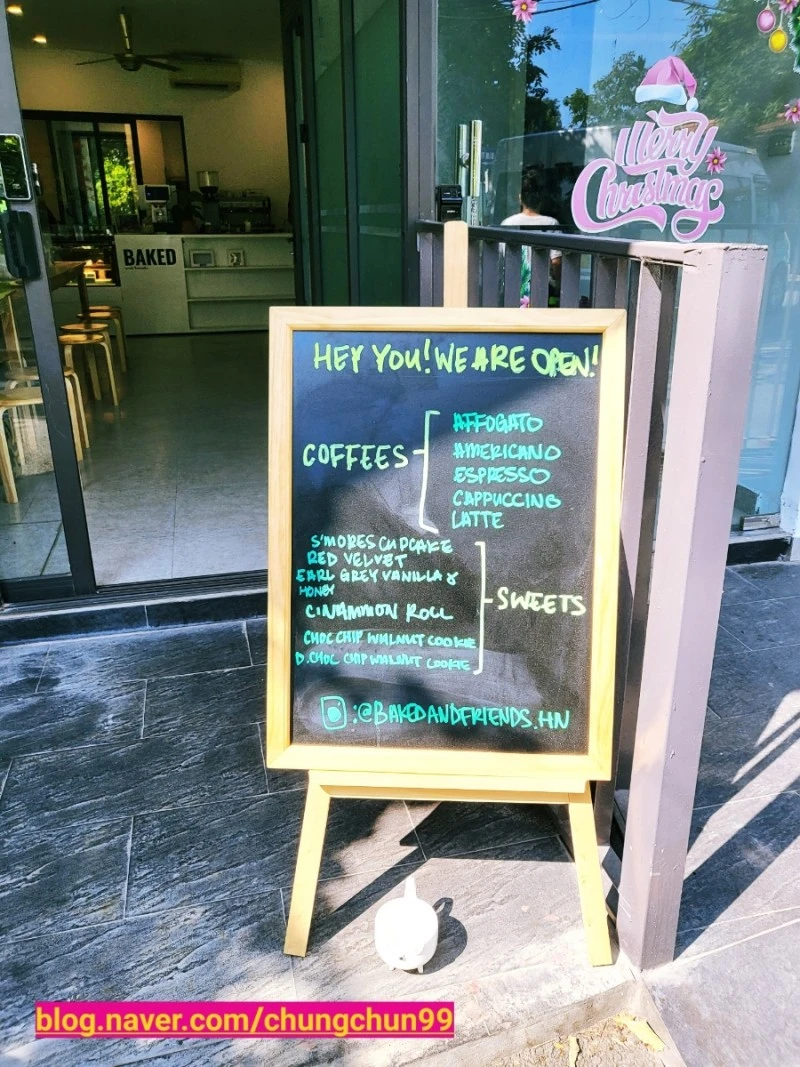 Merry
Christmas
BAKED
HEY YOU! WE ARE OPEN!
COFFEES
AFFOGATO
AMERICANO
ESPRESSO
CAPPUCCINO
LATTE
S'MORES CUPCAKE
RED VELVET
EARL GREY VANILLA &
HONEY
CINAMMON ROLL
CHOC CHIP WALNUT COOKIE
D.CHOC CHIP WALNUT COOKIE
SWEETS
:@BAKEDANDFRIENDS.HN
blog.naver.com/chungchun99